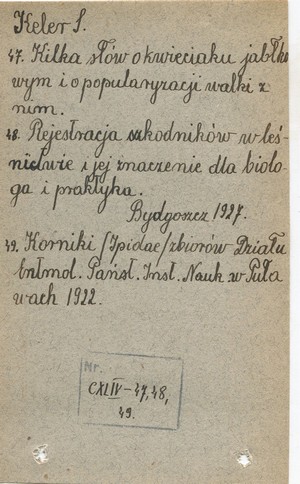 Keler S.
47. Kilka słów o kwieciaku jabłko
wym i o popularyzacji walki z
nim.
48. Rejestracja szkodników w leś-
nictwie i jej znaczenie dla biolo-
ga i praktyka.
Bydgoszcz 1927.
49. Korniki /Ipidae/ zbiorów Działu
Entmol. Państ. Inst. Nauk. w Puła
wach 1922.
Nr.
CXLIV - 47, 48,
49.